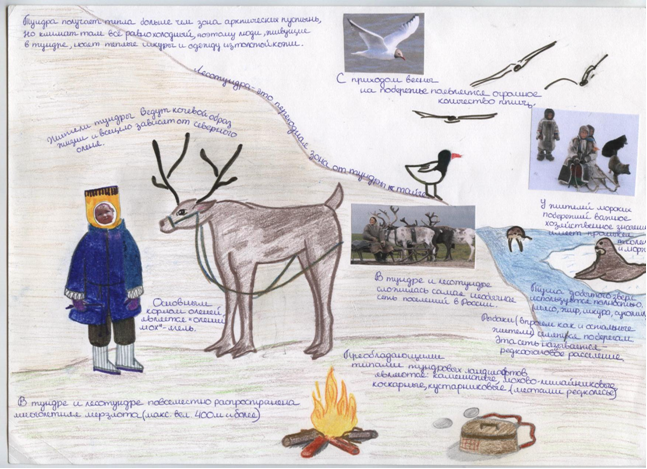 Тундра получает тепла больше чем зона арктических пустынь,
Но климат там всё равно холодный, поэтому люди, живущие
в тундре, носят теплые шкуры и одежду из толстой кожи.
Лесотундра - это переходная зона от тундры к тайге
С приходом весны
на побережье появляется огромное
количество птиц.
Жители тундры ведут кочевой образ
жизни и всецело зависят от северного
оленя.
У жителей морских
побережий важное
хозяйственное значение
имеет промысел
и морж
Основным
кормом оленей
является "олений
мох"
В тундре и лесотундре
сложилась самая
сеть поселений в России.
Туша добытого зверя
используется полностью:
мясо, жир, шкура,
(впрочем как и остальные
жители)
Это есть называние -
редкоочаговое расселение.
Преобладающими
типами тундровых ландшафтов
являются: каменистые, мохово-лишайниковые,
кочкарные, кустарниковые (местами редколесье)
В тундре и лесотундре повсеместно распространена
многолетняя мерзлота (макс вел. 400м и более)